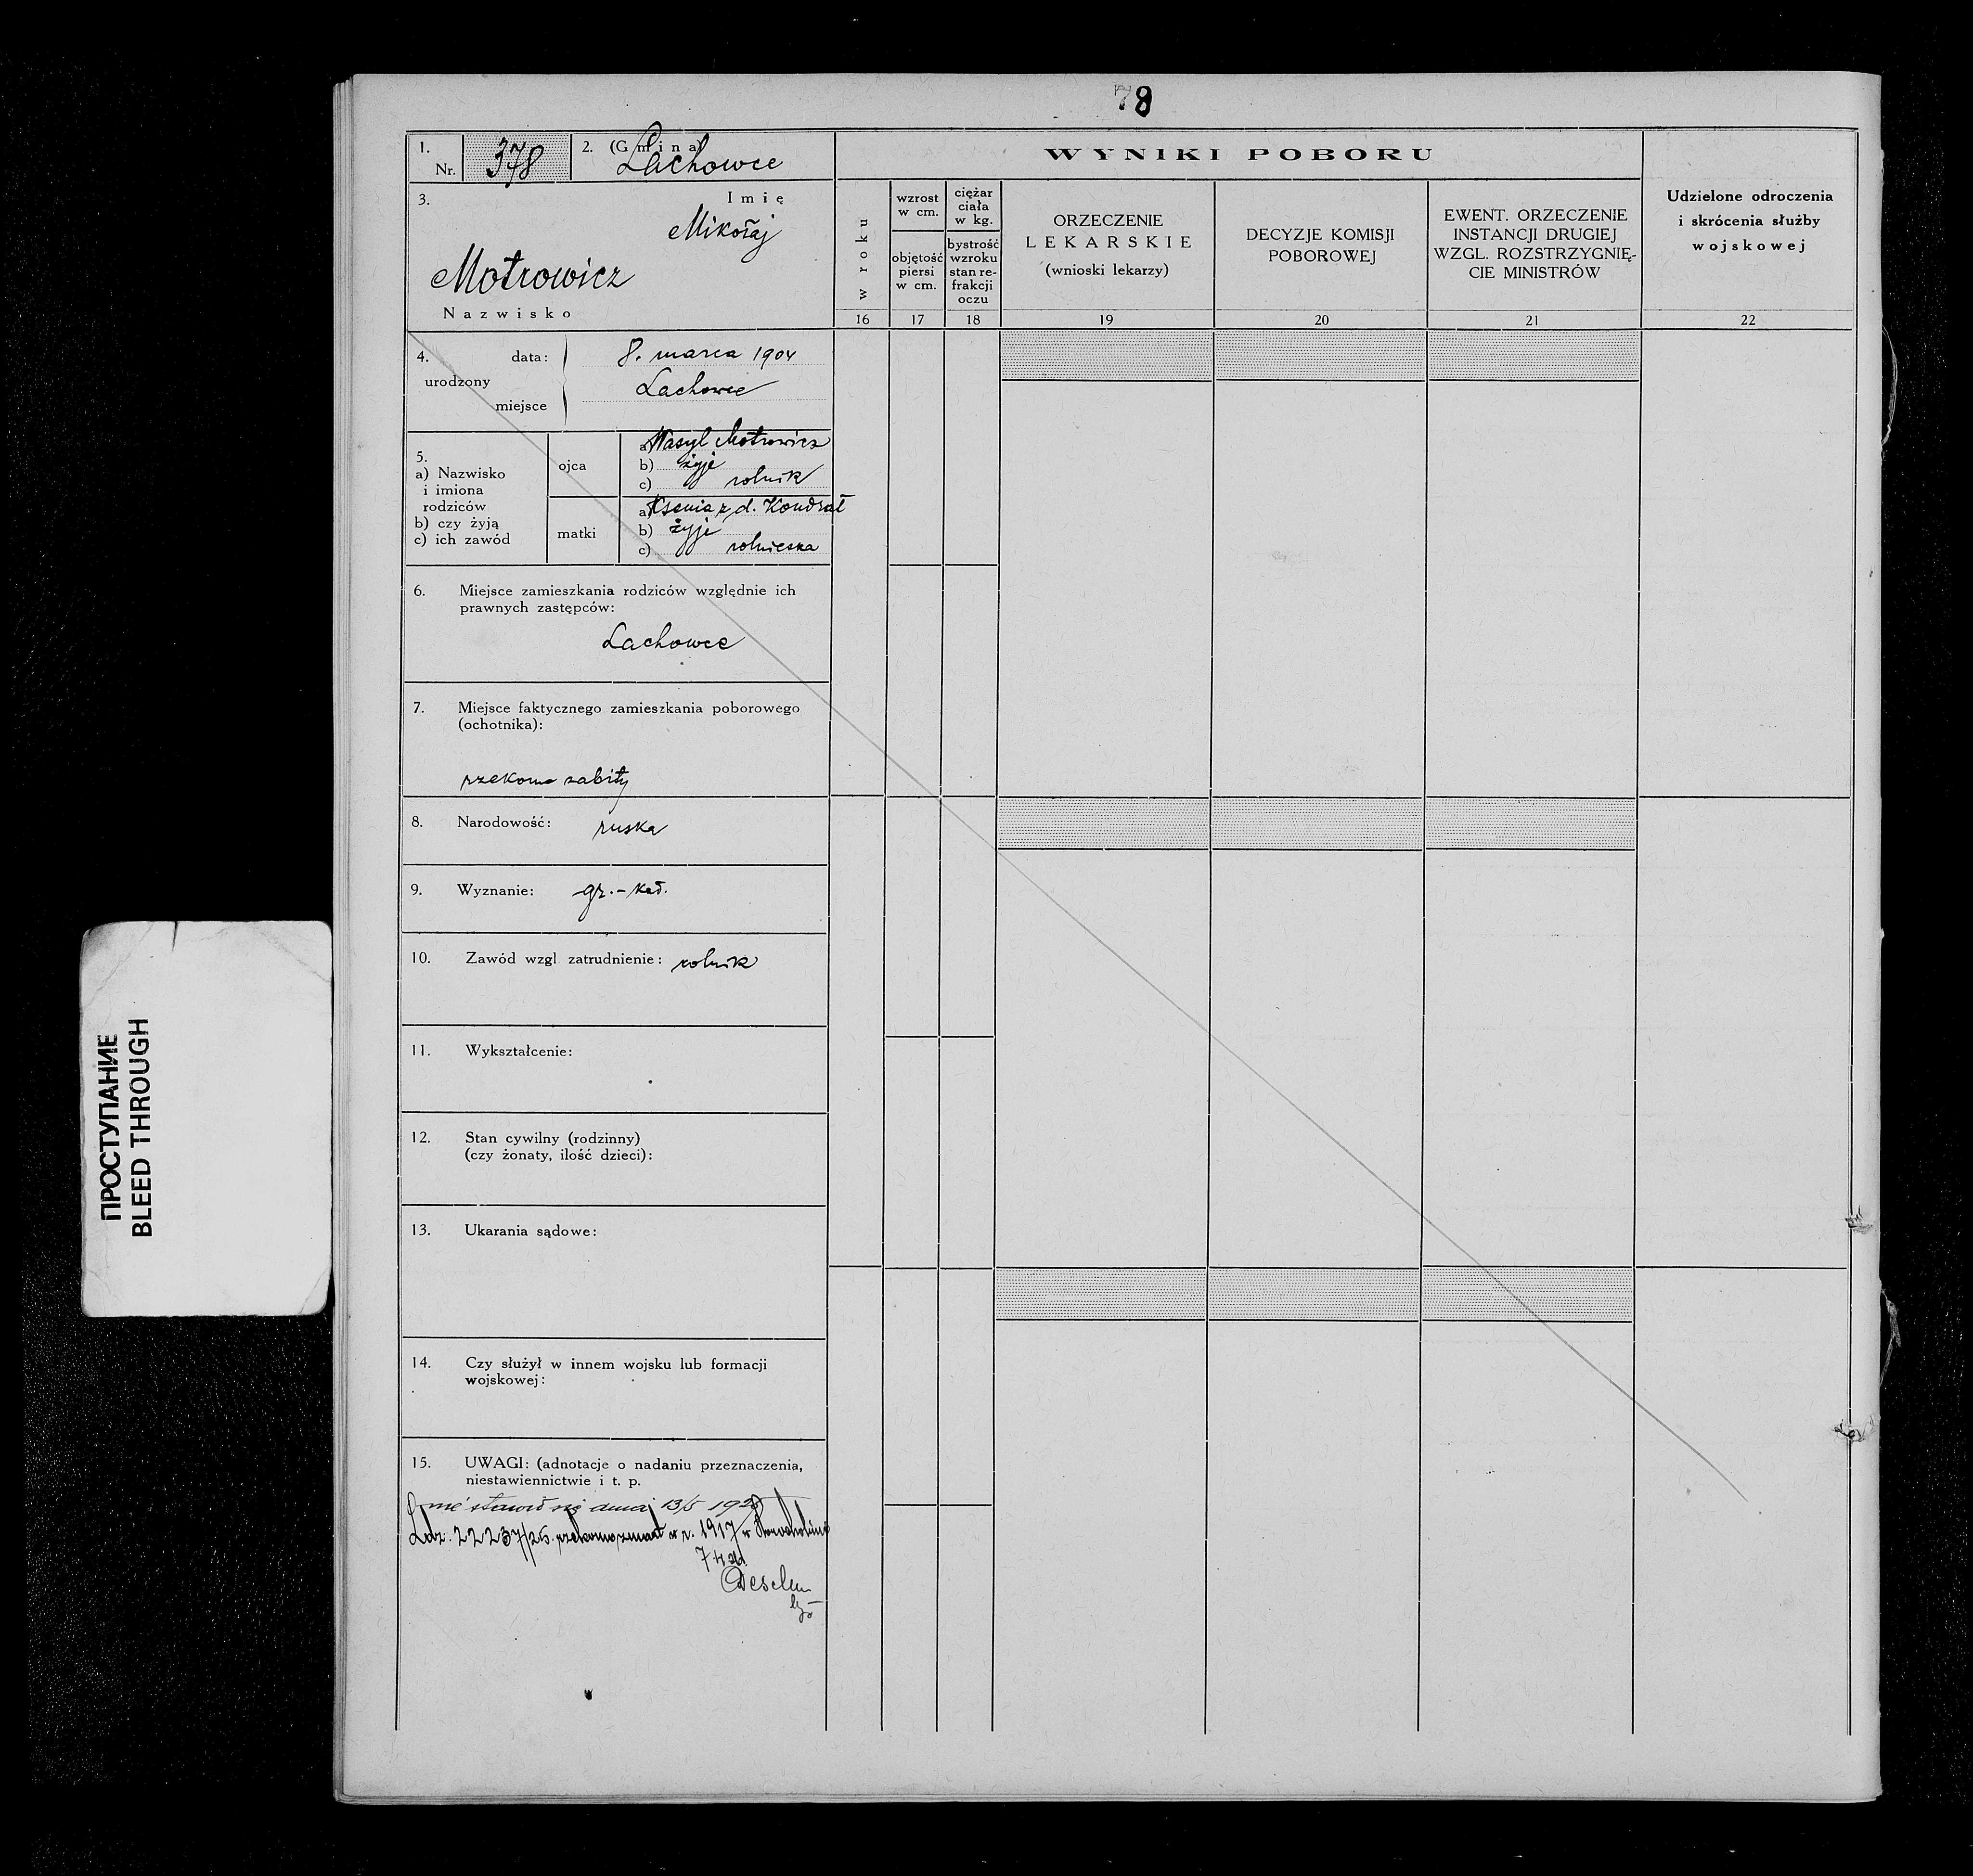 78
1.
Nr. 378
2. (Gmina)
Lachowce
3.
Imię
Mikołaj
Motrowicz
Nazwisko
WYNIKI POBORU
w roku
wzrost
w cm.
objętość
piersi
w cm.
ciężar
ciała
w kg.
bystrość
wzroku
stan re-
frakcji
oczu
ORZECZENIE
LEKARSKIE
(wnioski lekarzy)
DECYZJE KOMISJI
POBOROWEJ
EWENT. ORZECZENIE
INSTANCJI DRUGIEJ
WZGL. ROZSTRZYGNIĘ-
CIE MINISTRÓW
Udzielone odroczenia
i skrócenia służby
wojskowej
16 17 18 19 20 21 22
4. data: 8. marca 1904
urodzony
miejsce Lachowce
5.
a) Nazwisko
i imiona
rodziców
b) czy żyją
c) ich zawód
ojca
a) Wasyl Motrowicz
b) żyje
c) rolnik
matki
a) Ksenia z d. Kondrat
b) żyje
c) rolniczka
6. Miejsce zamieszkania rodziców względnie ich
prawnych zastępców:
Lachowce
7. Miejsce faktycznego zamieszkania poborowego
(ochotnika):
rzekomo zabity
8. Narodowość: ruska
9. Wyznanie: gr.-kat.
10. Zawód wzgl zatrudnienie: rolnik
11. Wykształcenie:
12. Stan cywilny (rodzinny)
(czy żonaty, ilość dzieci):
13. Ukarania sądowe:
14. Czy służył w innem wojsku lub formacji
wojskowej:
15. UWAGI: (adnotacje o nadaniu przeznaczenia,
niestawiennictwie i t. p.
nie stawił się dnia 13/5 192
L.dz. 22237/26. rzekomo zmarł w r. 1917 w
ПРОСТУПАНИЕ
BLEED THROUGH